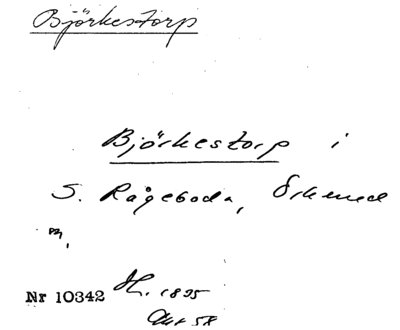 Björkestorp
Björkestorp i
S. Rågeboda, Örkened
Nr 10342 H. 1895
Akt 58